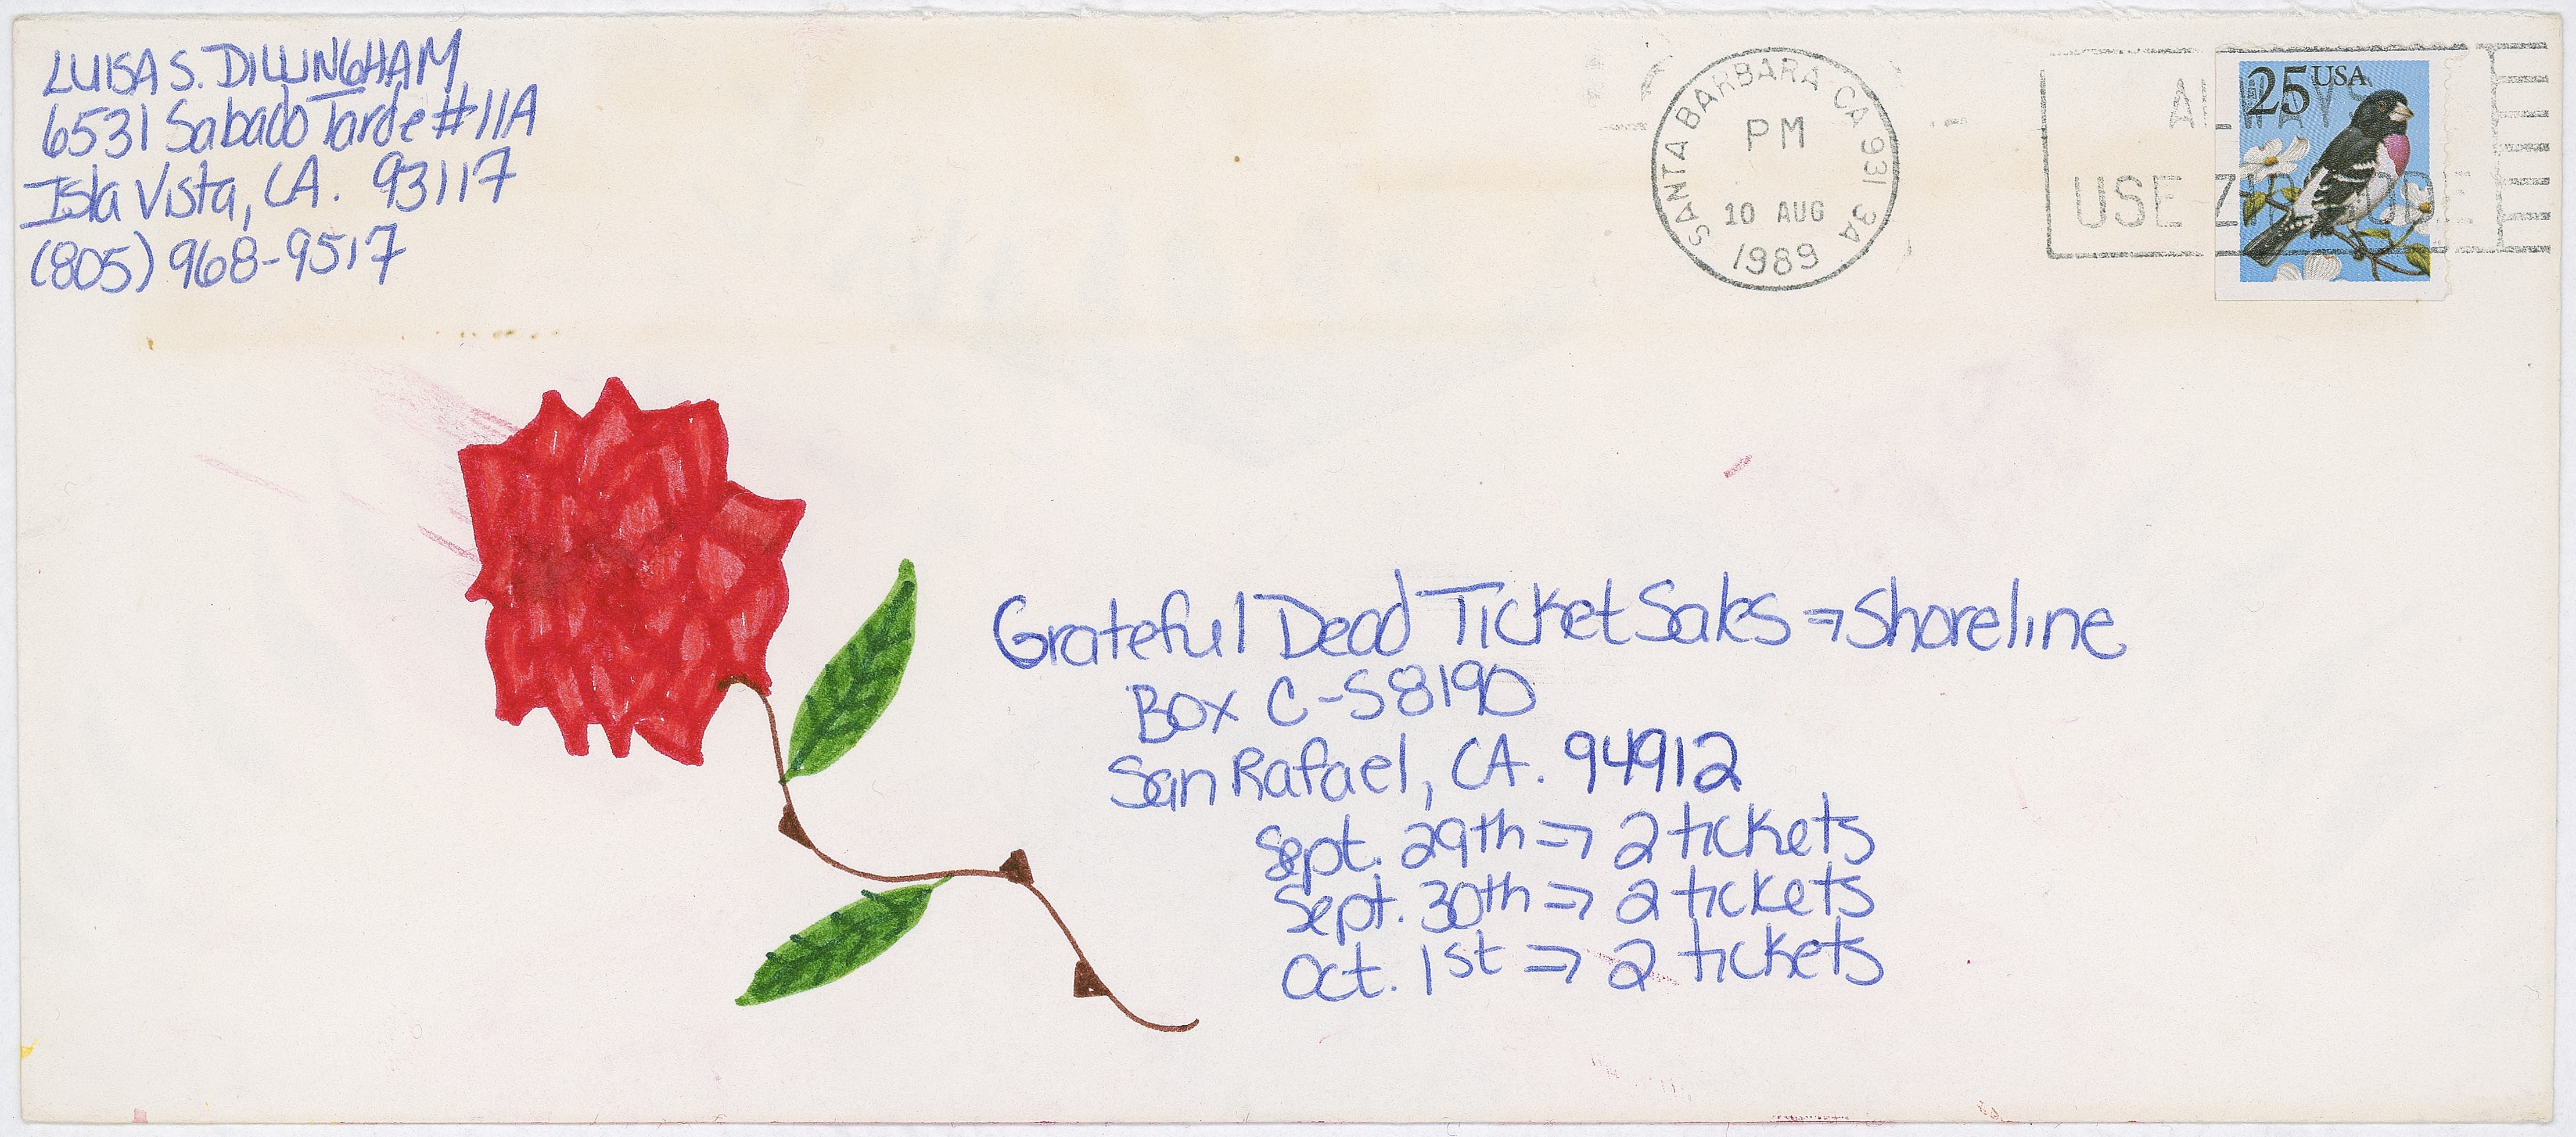 LUISA S. DILLINGHAM
6531 Sabado Tarde #11A
Isla Vista, CA. 93117
(805) 968-9517
SANTA BARBARA CA 931 3A
PM
10 AUG
1989
ALWAYS
USE ZIP CODE
25 USA
Grateful Dead Ticket Sales → Shoreline
Box C-S8190
San Rafael, CA. 94912
Sept. 29th ⇒ 2 tickets
Sept. 30th ⇒ 2 tickets
Oct. 1st ⇒ 2 tickets